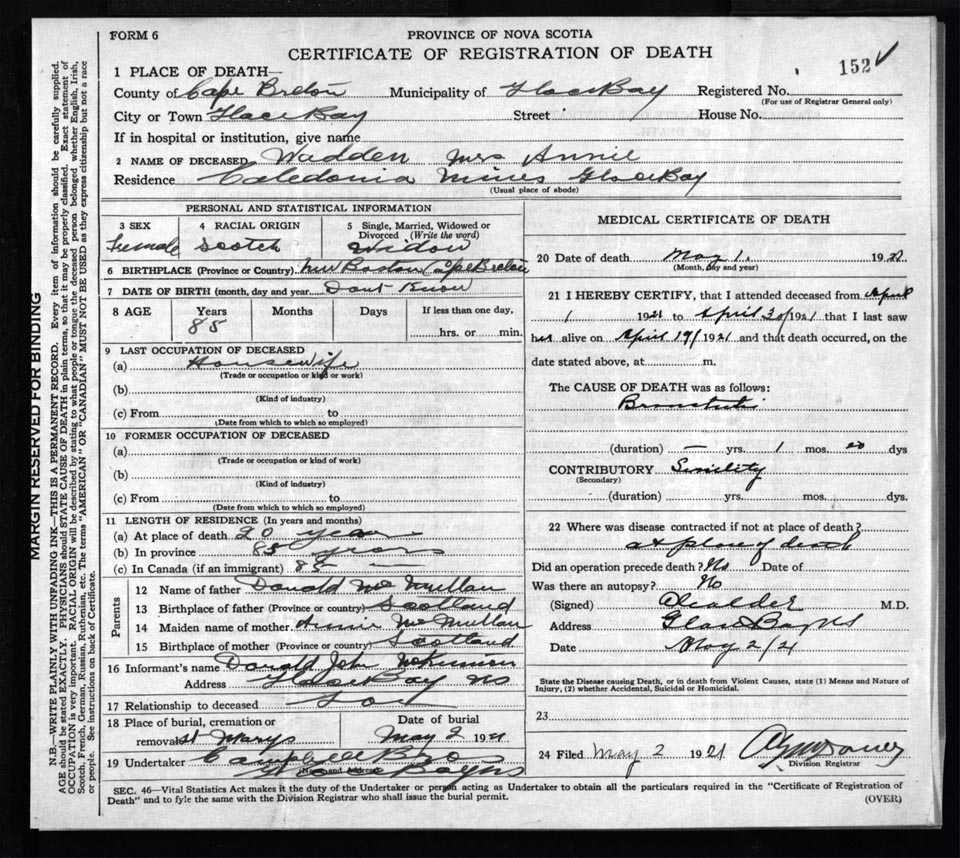 FORM 6
PROVINCE OF NOVA SCOTIA
CERTIFICATE OF REGISTRATION OF DEATH
152
1 PLACE OF DEATH—
County of Cape Breton Municipality of Glace Bay Registered No.
(For use of Registrar General only)
City or Town Glace Bay Street House No.
If in hospital or institution, give name
2 NAME OF DECEASED Wadden Mrs Annie
Residence Caledonia Mines Glace Bay
(Usual place of abode)
PERSONAL AND STATISTICAL INFORMATION
3 SEX 4 RACIAL ORIGIN 5 Single, Married, Widowed or Divorced (Write the word)
Female Scotch Widow
6 BIRTHPLACE (Province or Country) New Boston Cape Breton
7 DATE OF BIRTH (month, day and year) Dont Know
8 AGE Years Months Days If less than one day,
85 hrs. or min.
9 LAST OCCUPATION OF DECEASED
(a) Housewife
(Trade or occupation or kind or work)
(b)
(Kind of industry)
(c) From to
(Date from which to which so employed)
10 FORMER OCCUPATION OF DECEASED
(a)
(Trade or occupation or kind of work)
(b)
(Kind of industry)
(c) From to
(Date from which to which so employed)
11 LENGTH OF RESIDENCE (In years and months)
(a) At place of death 20 years
(b) In province 85 years
(c) In Canada (if an immigrant) 85 —
Parents
12 Name of father Donald McMullan
13 Birthplace of father (Province or country) Scotland
14 Maiden name of mother Annie McMullan
15 Birthplace of mother (Province or country) Scotland
16 Informant's name Donald John McKinnon
Address Glace Bay NS
17 Relationship to deceased
18 Place of burial, cremation or Date of burial
removal St Marys May 2 1921
19 Undertaker Bros
(Name and Address)
Glace Bay NS
MEDICAL CERTIFICATE OF DEATH
20 Date of death May 1. 1921
(Month, day and year)
21 I HEREBY CERTIFY, that I attended deceased from April
1 1921 to April 30/1921 that I last saw
her alive on April 19/1921 and that death occurred, on the
date stated above, at m.
The CAUSE OF DEATH was as follows:
Bronchitis
(duration) — yrs. 1 mos. 20 dys
CONTRIBUTORY Senility
(Secondary)
(duration) yrs. mos. dys.
22 Where was disease contracted if not at place of death?
at place of death
Did an operation precede death? No Date of
Was there an autopsy? No
(Signed) M.D.
Address Glace Bay NS
Date May 2/21
State the Disease causing Death, or in death from Violent Causes, state (1) Means and Nature of
Injury, (2) whether Accidental, Suicidal or Homicidal.
23
24 Filed May 2 1921
Division Registrar
SEC. 46—Vital Statistics Act makes it the duty of the Undertaker or person acting as Undertaker to obtain all the particulars required in the "Certificate of Registration of
Death" and to fyle the same with the Division Registrar who shall issue the burial permit.
(OVER)
MARGIN RESERVED FOR BINDING
N.B.—WRITE PLAINLY WITH UNFADING INK—THIS IS A PERMANENT RECORD. Every item of information should be carefully supplied.
AGE should be stated EXACTLY. PHYSICIANS should STATE CAUSE OF DEATH in plain terms, so that it may be properly classified. Exact statement of
OCCUPATION is very important. RACIAL ORIGIN will be described by stating to what people or tongue the deceased person belonged whether English, Irish,
Scotch, French, German, Russian, Ruthenian, etc. The terms "AMERICAN" OR "CANADIAN" MUST NOT BE USED as they express citizenship but not a race
or people. See instructions on back of Certificate.